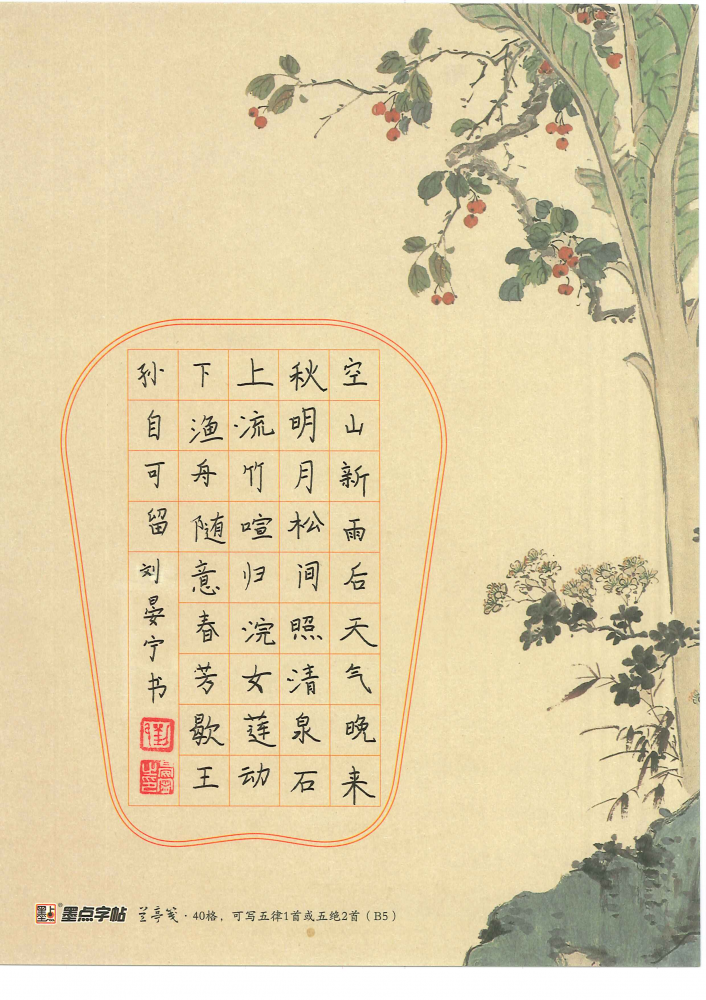 空山新雨后天气晚来
秋明月松间照清泉石
上流竹喧归浣女莲动
下渔舟随意春芳歇王
孙自可留刘晏宁书
墨点字帖 兰亭笺·40格，可写五律1首或五绝2首（B5）